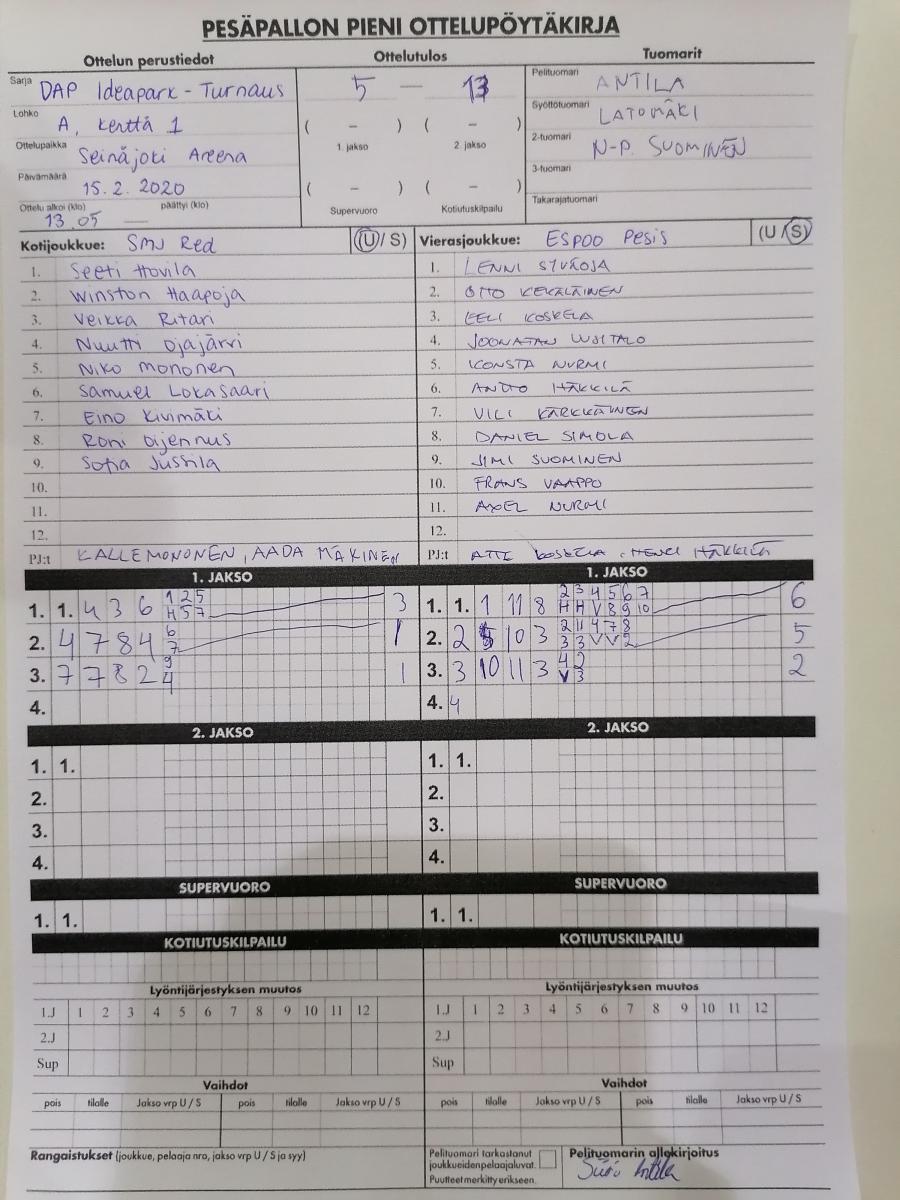 PESÄPALLON PIENI OTTELUPÖYTÄKIRJA
Ottelun perustiedot
Ottelutulos
Tuomarit
Sarja DAP Ideapark - Turnaus
5 — 13
Pelituomari ANTILA
Lohko A, kenttä 1
( - ) ( - )
Syöttötuomari LATOMÄKI
Ottelupaikka Seinäjoki Areena
1. jakso 2. jakso
2-tuomari N-P. SUOMINEN
Päivämäärä 15.2.2020
( - ) ( - )
3-tuomari
Ottelu alkoi (klo) 13.05 — päättyi (klo)
Supervuoro Kotiutuskilpailu
Takarajatuomari
Kotijoukkue: SMJ Red (U / S)
1. Seeti Hovila
2. Winston Haapoja
3. Veikka Ritari
4. Nuutti Ojajärvi
5. Niko Mononen
6. Samuel Lokasaari
7. Eino Kivimäki
8. Roni Oijennus
9. Sofia Jussila
10.
11.
12.
PJ:t KALLE MONONEN, AADA MÄKINEN
Vierasjoukkue: ESPOO Pesis (U / S)
1. LENNI SYVÄOJA
2. OTTO KEKÄLÄINEN
3. EELI KOSKELA
4. JOONATAN
5. KONSTA NURMI
6. HÄKKILÄ
7. VILI KÄRKKÄINEN
8. DANIEL SIMOLA
9. JIMI SUOMINEN
10. FRANS VAAPPO
11. AXEL NURMI
12.
PJ:t KOSKELA, HÄKKILÄ
1. JAKSO
1. 1. 4 3 6 1 2 5 3
H 5 7
2. 4 7 8 4 6 1
7
3. 7 7 8 2 9 1
4
4.
1. JAKSO
1. 1. 1 11 8 2 3 4 5 6 7 6
H H V 8 9 10
2. 2 10 3 2 11 4 7 8 5
3 3 V V 2
3. 3 10 11 3 4 2 2
V 3
4. 4
2. JAKSO
1. 1.
2.
3.
4.
2. JAKSO
1. 1.
2.
3.
4.
SUPERVUORO
1. 1.
SUPERVUORO
1. 1.
KOTIUTUSKILPAILU
KOTIUTUSKILPAILU
Lyöntijärjestyksen muutos
1.J 1 2 3 4 5 6 7 8 9 10 11 12
2.J
Sup
Lyöntijärjestyksen muutos
1.J 1 2 3 4 5 6 7 8 9 10 11 12
2.J
Sup
Vaihdot
pois tilalle Jakso vrp U / S pois tilalle Jakso vrp U / S
Vaihdot
pois tilalle Jakso vrp U / S pois tilalle Jakso vrp U / S
Rangaistukset (joukkue, pelaaja nro, jakso vrp U / S ja syy)
Pelituomari tarkastanut
joukkueidenpelaajaluvat.
Puutteet merkitty erikseen.
Pelituomarin allekirjoitus